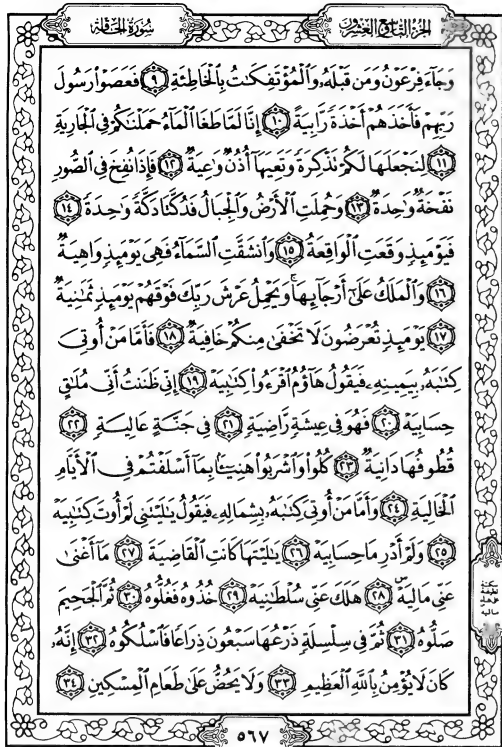 الجزء التاسع والعشرين سورة الحاقة
وَجَآءَ فِرْعَوْنُ وَمَن قَبْلَهُۥ وَٱلْمُؤْتَفِكَٰتُ بِٱلْخَاطِئَةِ ٩ فَعَصَوْا۟ رَسُولَ
رَبِّهِمْ فَأَخَذَهُمْ أَخْذَةً رَّابِيَةً ١٠ إِنَّا لَمَّا طَغَا ٱلْمَآءُ حَمَلْنَٰكُمْ فِى ٱلْجَارِيَةِ
١١ لِنَجْعَلَهَا لَكُمْ تَذْكِرَةً وَتَعِيَهَآ أُذُنٌ وَٰعِيَةٌ ١٢ فَإِذَا نُفِخَ فِى ٱلصُّورِ
نَفْخَةٌ وَٰحِدَةٌ ١٣ وَحُمِلَتِ ٱلْأَرْضُ وَٱلْجِبَالُ فَدُكَّتَا دَكَّةً وَٰحِدَةً ١٤
فَيَوْمَئِذٍ وَقَعَتِ ٱلْوَاقِعَةُ ١٥ وَٱنشَقَّتِ ٱلسَّمَآءُ فَهِىَ يَوْمَئِذٍ وَاهِيَةٌ
١٦ وَٱلْمَلَكُ عَلَىٰٓ أَرْجَآئِهَا ۚ وَيَحْمِلُ عَرْشَ رَبِّكَ فَوْقَهُمْ يَوْمَئِذٍ ثَمَٰنِيَةٌ
١٧ يَوْمَئِذٍ تُعْرَضُونَ لَا تَخْفَىٰ مِنكُمْ خَافِيَةٌ ١٨ فَأَمَّا مَنْ أُوتِىَ
كِتَٰبَهُۥ بِيَمِينِهِۦ فَيَقُولُ هَآؤُمُ ٱقْرَءُوا۟ كِتَٰبِيَهْ ١٩ إِنِّى ظَنَنتُ أَنِّى مُلَٰقٍ
حِسَابِيَهْ ٢٠ فَهُوَ فِى عِيشَةٍ رَّاضِيَةٍ ٢١ فِى جَنَّةٍ عَالِيَةٍ ٢٢
قُطُوفُهَا دَانِيَةٌ ٢٣ كُلُوا۟ وَٱشْرَبُوا۟ هَنِيٓـًٔۢا بِمَآ أَسْلَفْتُمْ فِى ٱلْأَيَّامِ
ٱلْخَالِيَةِ ٢٤ وَأَمَّا مَنْ أُوتِىَ كِتَٰبَهُۥ بِشِمَالِهِۦ فَيَقُولُ يَٰلَيْتَنِى لَمْ أُوتَ كِتَٰبِيَهْ
٢٥ وَلَمْ أَدْرِ مَا حِسَابِيَهْ ٢٦ يَٰلَيْتَهَا كَانَتِ ٱلْقَاضِيَةَ ٢٧ مَآ أَغْنَىٰ
عَنِّى مَالِيَهْ ۜ ٢٨ هَلَكَ عَنِّى سُلْطَٰنِيَهْ ٢٩ خُذُوهُ فَغُلُّوهُ ٣٠ ثُمَّ ٱلْجَحِيمَ
صَلُّوهُ ٣١ ثُمَّ فِى سِلْسِلَةٍ ذَرْعُهَا سَبْعُونَ ذِرَاعًا فَٱسْلُكُوهُ ٣٢ إِنَّهُۥ
كَانَ لَا يُؤْمِنُ بِٱللَّهِ ٱلْعَظِيمِ ٣٣ وَلَا يَحُضُّ عَلَىٰ طَعَامِ ٱلْمِسْكِينِ ٣٤
٥٦٧